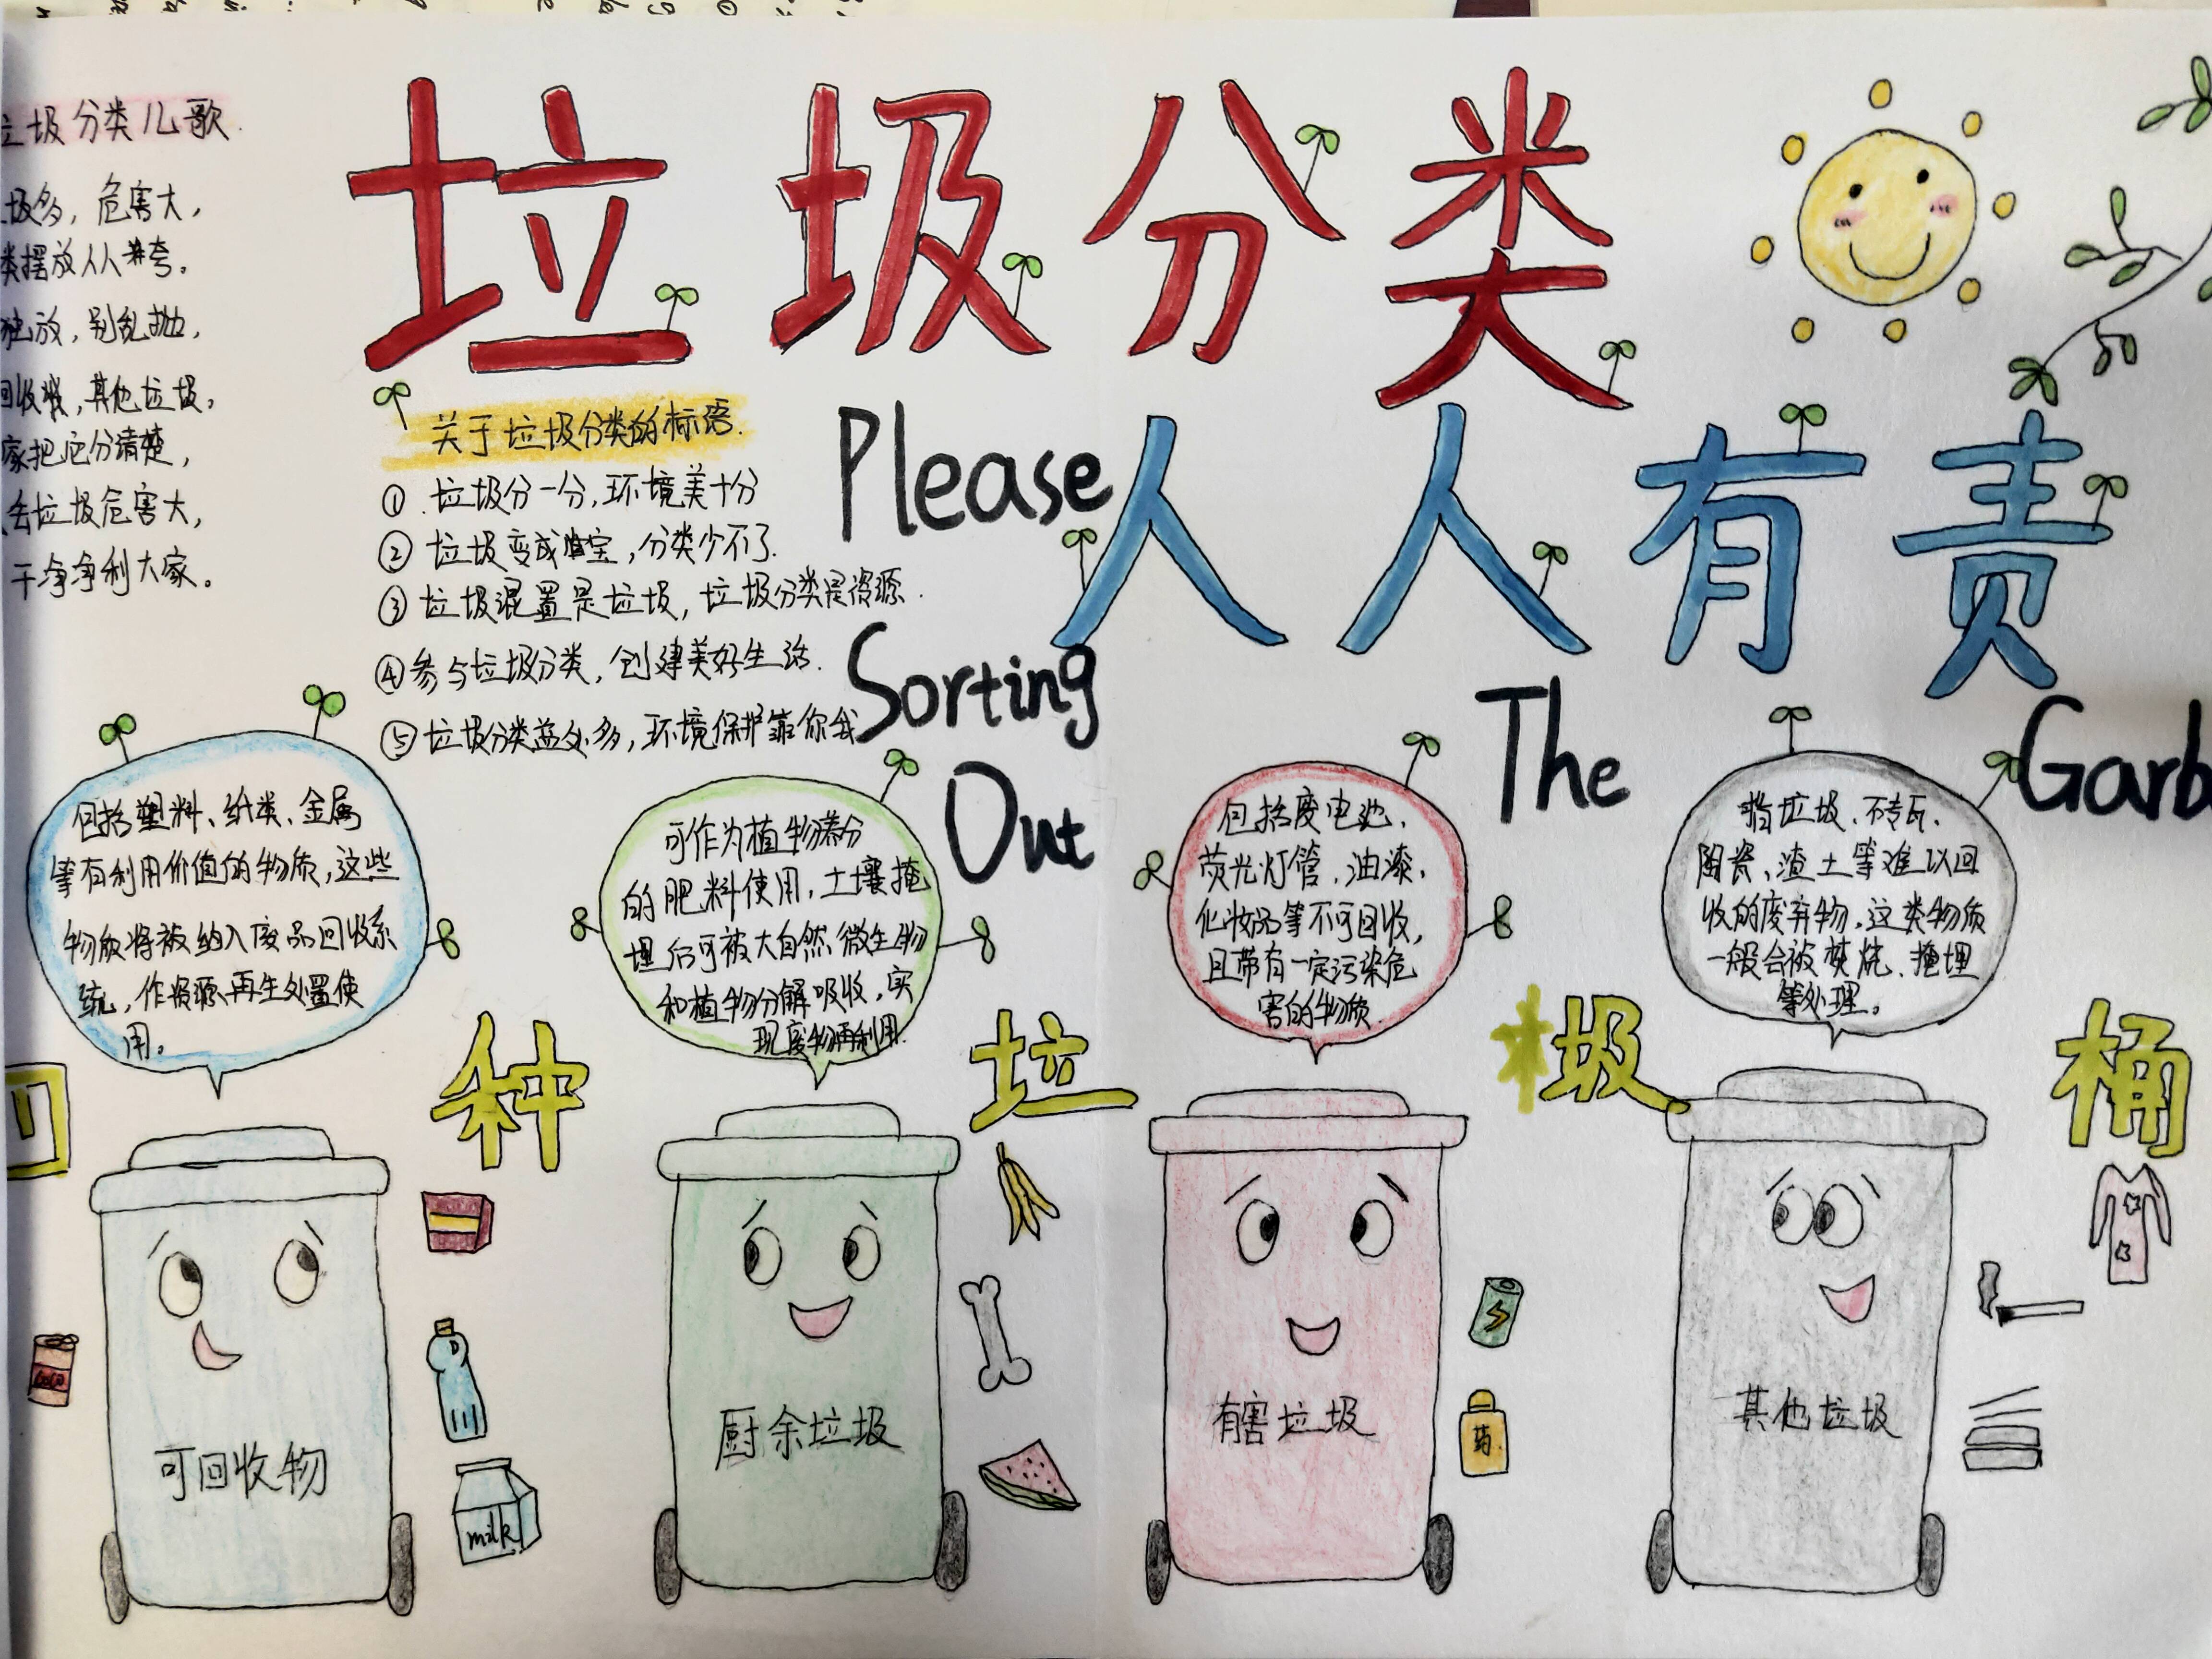 垃圾分类
人人有责
圾分类儿歌.
圾多，危害大，
类摆放人人夸。
放，别乱抛，
回收，其他垃圾，
家把它分清楚，
垃圾危害大，
干净净利大家。
关于垃圾分类的标语.
① 垃圾分一分，环境美十分
② 垃圾变成宝，分类少不了.
③ 垃圾混置是垃圾，垃圾分类是资源.
④ 参与垃圾分类，创建美好生活.
⑤ 垃圾分类益处多，环境保护靠你我
Please
Sorting
Out
The
Garb
包括塑料、纸类、金属
等有利用价值的物质，这些
物质将被纳入废品回收系
统，作资源再生处置使
用。
可作为植物养分
的肥料使用，土壤掩
埋后可被大自然微生物
和植物分解吸收，实
现废物再利用.
包括废电池、
荧光灯管、油漆、
化妆品等不可回收，
且带有一定污染危
害的物质.
指垃圾、砖瓦、
陶瓷、渣土等难以回
收的废弃物，这类物质
一般会被焚烧、掩埋
等处理。
四种垃圾桶
可回收物
厨余垃圾
有害垃圾
其他垃圾
milk
药